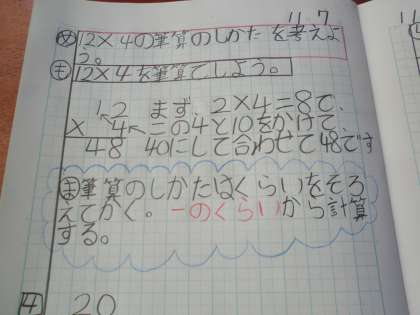 11.7
め 12×4の筆算のしかたを考えよ
う。
も 12×4を筆算でしよう。
12 まず、2×4=8で、
× 4 この4と10をかけて、
48 40にして合わせて48です
ま 筆算のしかたはくらいをそろ
えてかく。一のくらいから計算
する。
4 20